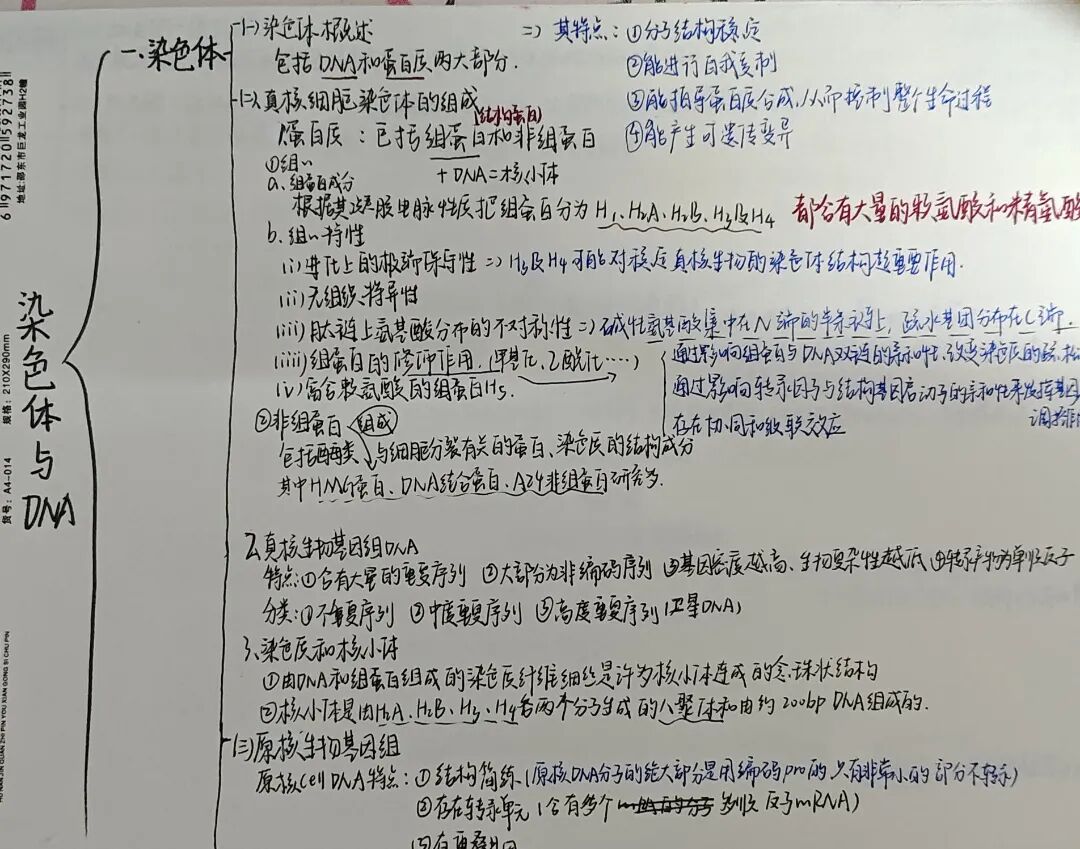 染色体与DNA
一、染色体
(一)染色体概述 => 其特点:①分子结构稳定
包括DNA和蛋白质两大部分. ②能进行自我复制
③能指导蛋白质合成,从而控制整个生命过程
④能产生可遗传变异
(二)真核细胞染色体的组成
(结构蛋白)
蛋白质:包括组蛋白和非组蛋白
①组〃 +DNA=核小体
a.组蛋白成分
根据其凝胶电脉性质把组蛋白分为H1、H2A、H2B、H3及H4 都含有大量的赖氨酸和精氨酸
b.组〃特性
(i)进化上的极端保守性=>H3及H4可能对稳定真核生物的染色体结构起重要作用.
(ii)无组织特异性
(iii)肽链上氨基酸分布的不对称性=>碱性氨基酸集中在N端的半条链上,疏水基团分布在C端.
(iiii)组蛋白的修饰作用.(甲基化、乙酰化……)
通过影响组蛋白与DNA双链的亲和性,改变染色质的疏松
(iv)富含赖氨酸的组蛋白H5.
通过影响转录因子与结构基因启动子的亲和性来发挥基因
调控
存在协同和级联效应
②非组蛋白 组成
包括酶类、与细胞分裂有关的蛋白、染色质的结构成分
其中HMG蛋白、DNA结合蛋白、A24非组蛋白研究多.
2.真核生物基因组DNA
特点:①含有大量的重复序列 ②大部分为非编码序列 ③基因密度越高、生物复杂性越低 ④转录产物为单顺反子
分类:①不重复序列 ②中度重复序列 ③高度重复序列(卫星DNA)
3.染色质和核小体
①由DNA和组蛋白组成的染色质纤维细丝是许多核小体连成的念珠状结构
②核小体是由H2A、H2B、H3、H4各两个分子生成的八聚体和由约200bp DNA组成的.
(三)原核生物基因组
原核cell DNA特点:①结构简练(原核DNA分子的绝大部分是用编码pro的,只有非常小的部分不转录)
②存在转录单元(含有多个 多顺反子mRNA)
③有重叠基因
6 971720 592738
地址:邵东市巨龙工业园H2幢
规格:210X290mm
货号:A4-014
HU NAN JIN GUAN ZHI PIN YOU XIAN GONG SI CHU PIN